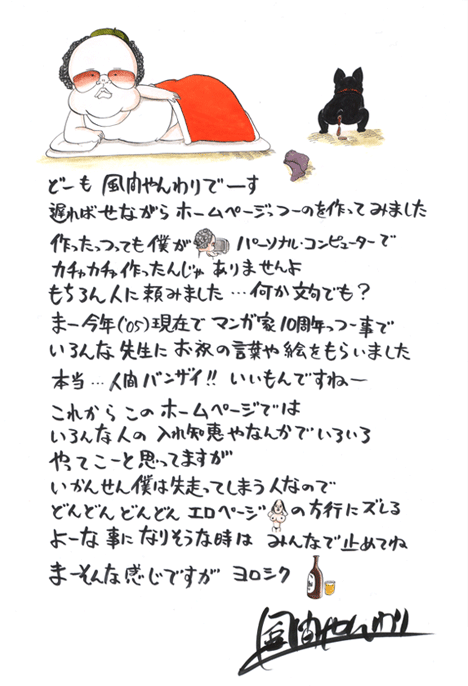 どーも 風間やんわりでーす
遅ればせながら ホームページっつーのを作ってみました
作ったっつっても僕が パーソナル・コンピューターで
カチャカチャ作ったんじゃ ありませんよ
もちろん人に頼みました…何か文句でも?
まー今年('05)現在で マンガ家10周年っつー事で
いろんな先生に お祝の言葉や絵をもらいました
本当…人間バンザイ!! いいもんですねー
これから このホームページでは
いろんな人の 入れ知恵やなんかでいろいろ
やってこーと思ってますが
いかんせん僕は失走ってしまう人なので
どんどんどんどん エロページ の方行にズレる
よーな事に なりそうな時は みんなで止めてね
まーそんな感じですが ヨロシク
風間やんわり